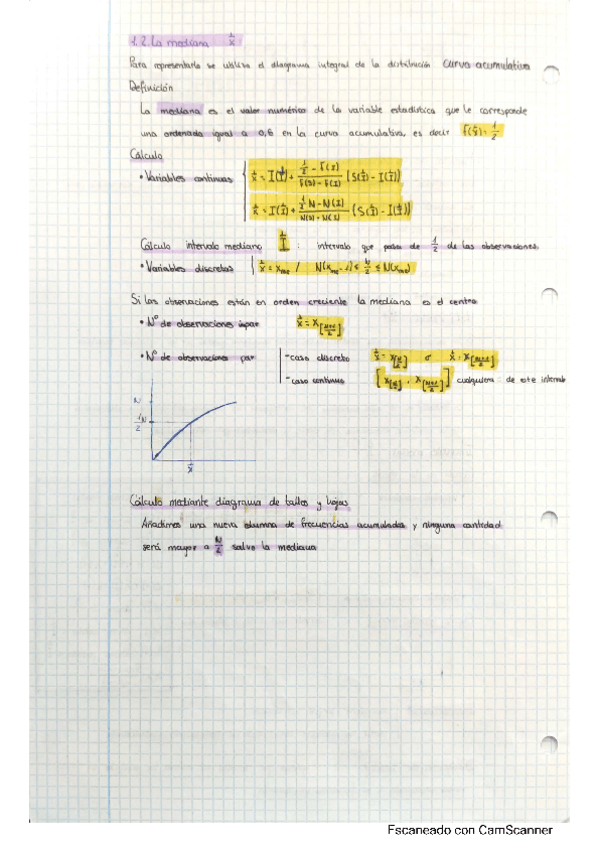 1.2. La mediana x̃
Para representarla se utiliza el diagrama integral de la distribución curva acumulativa
Definición
La mediana es el valor numérico de la variable estadística que le corresponde
una ordenada igual a 0,5 en la curva acumulativa, es decir F(x̃) = 1/2
Cálculo
• Variables continuas
Cálculo intervalo mediano : intervalo que pasa de 1/2 de las observaciones.
• Variables discretas
Si las observaciones están en orden creciente la mediana es el centro
• Nº de observaciones impar
• Nº de observaciones par
- caso discreto
- caso continuo cualquiera de este interval
N
1/2 N
x̃
Cálculo mediante diagrama de tallos y hojas
Añadimos una nueva columna de frecuencias acumuladas y ninguna cantidad
será mayor a N/2 salvo la mediana
Escaneado con CamScanner